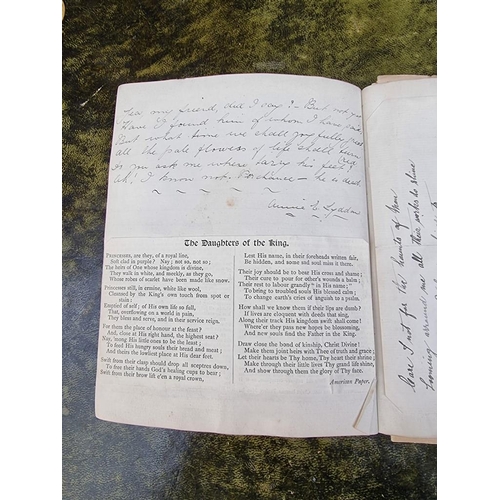 Yea, my friend, did I say? - But not yet
Have I found him of whom I have
But what time we shall joyfully greet
all the pale flowers of life shall turn red
As you ask me where tarry his feet?
Ah! I know not. Perchance - he is dead.
Annie E.
The Daughters of the King.
PRINCESSES, are they, of a royal line,
Soft clad in purple? Nay; not so, not so;
The heirs of One whose kingdom is divine,
They walk in white, and meekly, as they go,
Whose robes of scarlet have been made like snow.
Princesses still, in ermine, white like wool,
Cleansed by the King's own touch from spot or
stain:
Emptied of self; of His own life so full,
That, overflowing on a world in pain,
They bless and serve, and in their service reign.
For them the place of honour at the feast?
And, close at His right hand, the highest seat?
Nay, 'mong His little ones to be the least;
To feed His hungry souls their bread and meat;
And theirs the lowliest place at His dear feet.
Swift from their clasp should drop all sceptres down,
To free their hands God's healing cups to bear;
Swift from their brow life e'en a royal crown,
Lest His name, in their foreheads written fair,
Be hidden, and some sad soul miss it there.
Their joy should be to bear His cross and shame;
Their cure to pour for other's wounds a balm;
Their rest to labour grandly "in His name;"
To bring to troubled souls His blessed calm;
To change earth's cries of anguish to a psalm.
How shall we know them if their lips be dumb?
If lives are eloquent with deeds that sing,
Along their track His kingdom swift shall come!
Where'er they pass new hopes be blossoming,
And new souls find the Father in the King.
Draw close the bond of kinship, Christ Divine!
Make them joint heirs with Thee of truth and grace;
Let their hearts be Thy home, Thy heart their shrine;
Make through their little lives Thy grand life shine,
And show through them the glory of Thy face.
American Paper.
Care I not for the haunts of men
around me all their sides to shine